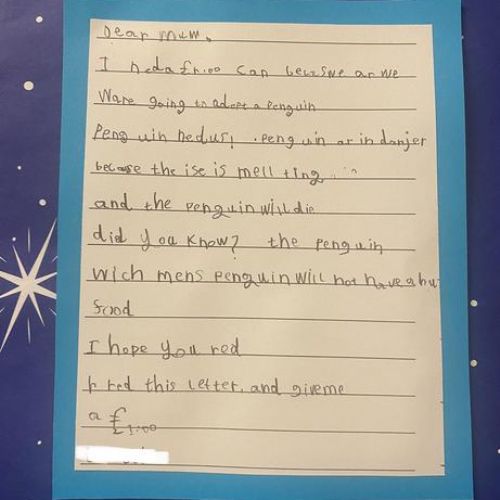 Dear mum,
I neda £1:00 can becuswe ar we
Ware going to adopt a Penguin
Penguin nedus! .penguin ar in danjer
becase the ise is mellting
and the penguin will die
did you know? the Penguin
wich mens penguin will not have
food
I hope you red
red this letter, and giveme
a £1:00